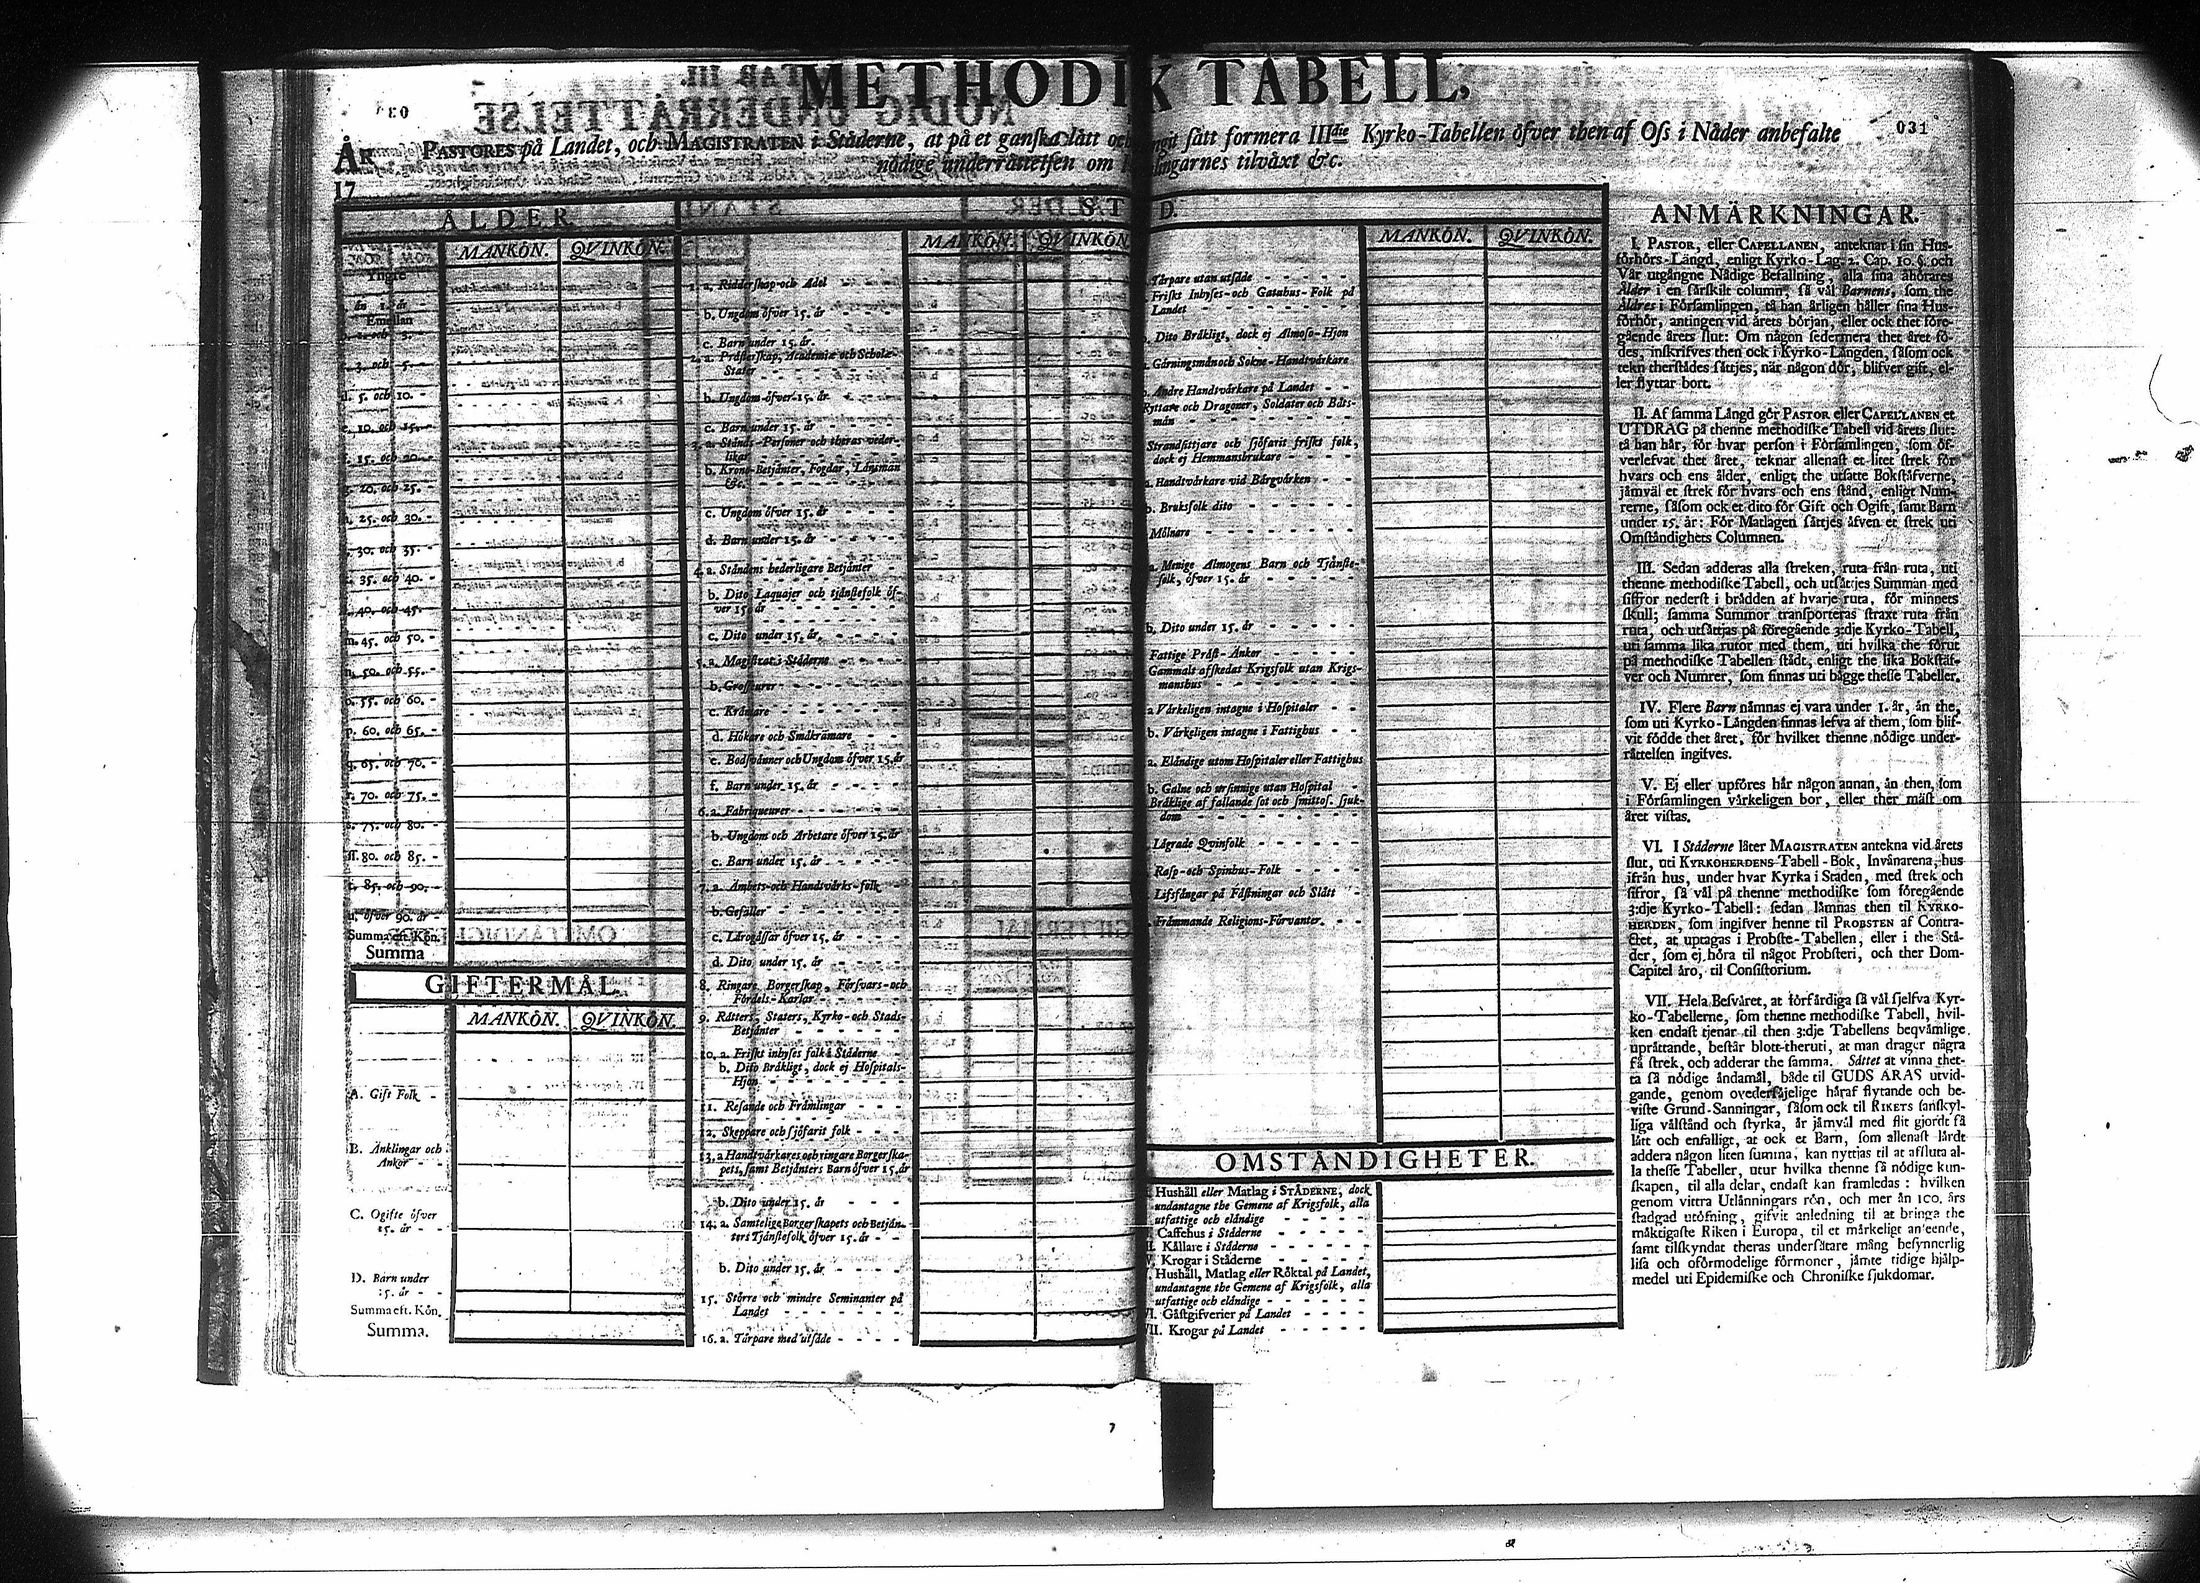 METHODIK TABELL,
031
ÅR
17
PASTORES på Landet, och MAGISTRATEN i Ståderne, at på et ganska lått och
sått formera IIIdie Kyrko-Tabellen öfver then af Oss i Nåder anbefalte
nödige underråttelsen om
tilväxt &c.
ÅLDER.
MANKÖN. QVINKÖN.
Yngre
än 1. år -
Emellan
3. och 5. -
d. 5. och 10. -
e. 10. och 15. -
f. 15. och 20. -
g. 20. och 25.
h. 25. och 30. -
i. 30. och 35. -
k. 35. och 40. -
l. 40. och 45. -
m. 45. och 50. -
n. 50. och 55. -
o. 55. och 60. -
p. 60. och 65. -
q. 65. och 70. -
r. 70. och 75. -
s. 75. och 80. -
ss. 80. och 85. -
t. 85. och 90. -
u. öfver 90. år -
Summa eft. Kön.
Summa
GIFTERMÅL.
MANKÖN. QVINKÖN.
A. Gift Folk -
B. Änklingar och
Änkor - -
C. Ogifte öfver
15. år - -
D. Barn under
15. år - -
Summa eft. Kön.
Summa.
MANKÖN. QVINKÖN
1. a. Ridderskap och Adel
b. Ungdom öfver 15. år
c. Barn under 15. år.
2. a. Pråsterskap, Academiæ och Scholæ-
Stater
b. Ungdom öfver 15. år
c. Barn under 15. år
3. a. Stånds-Personer och theras veder-
likar
b. Krono-Betjånter, Fogdar, Länsmän
&c.
c. Ungdom öfver 15. år
d. Barn under 15. år
4. a. Ståndens hederligare Betjånter
b. Dito Laquajer och tjånstefolk öf-
ver 15. år
c. Dito under 15. år
5. a. Magistrat i Ståderne
b. Grosseurer
c. Krämare
d. Hökare och Småkrämare
e. Bodsvänner och Ungdom öfver 15. år
f. Barn under 15. år
6. a. Fabriqueurer
b. Ungdom och Arbetare öfver 15. år
c. Barn under 15. år
7. a. Ämbets- och Handtvårks-folk
b. Gesäller
c. Lårogåssar öfver 15. år
d. Dito under 15. år
8. Ringare Borgerskap, Försvars- och
Fördels-Karlar
9. Råtters, Staters, Kyrko- och Stads-
Betjånter
10. a. Friskt inhyses folk i Ståderne
b. Dito Bråkligt, dock ej Hospitals-
Hjon
11. Resande och Fråmlingar
12. Skeppare och sjöfarit folk
13. a Handtvårkares och ringare Borgerska-
pets, samt Betjånters Barn öfver 15. år
b. Dito under 15. år
14. a. Samtelige Borgerskapets och Betjån-
ters Tjånstefolk öfver 15. år
b. Dito under 15. år
15. Större och mindre Seminanter på
Landet
16. a. Tårpare med utsåde
MANKÖN. QVINKÖN.
Tårpare utan utsåde
Friskt Inhyses- och Gatuhus-Folk på
Landet
Dito Bråkligt, dock ej Almoso-Hjon
Gårningsmån och Sokne-Handtvårkare
Andre Handtvårkare på Landet
Ryttare och Dragoner, Soldater och Båts-
mån
Strandsittjare och sjöfarit friskt folk,
dock ej Hemmansbrukare
a. Handtvårkare vid Bårgvårken
b. Bruksfolk dito
Mölnare
a. Menige Almogens Barn och Tjånste-
folk, öfver 15. år
b. Dito under 15. år
Fattige Pråst-Änkor
Gammalt afskedat Krigsfolk utan Krigs-
manshus
a Vårkeligen intagne i Hospitaler
b. Vårkeligen intagne i Fattighus
a. Elåndige utom Hospitaler eller Fattighus
b. Galne och ursinnige utan Hospital
Bråklige af fallande sot och smittos. sjuk-
dom
Lågrade Qvinfolk
Rasp- och Spinhus-Folk
Lifsfångar på Fåstningar och Slått
Fråmmande Religions-Förvanter.
OMSTÅNDIGHETER.
Hushåll eller Matlag i STÅDERNE, dock
undantagne the Gemene af Krigsfolk, alla
utfattige och elåndige
Caffehus i Ståderne
Kållare i Ståderne
Krogar i Ståderne
Hushåll, Matlag eller Röktal på Landet,
undantagne the Gemene af Krigsfolk, alla
utfattige och elåndige
VI. Gåstgifverier på Landet
VII. Krogar på Landet
ANMÄRKNINGAR.
I. PASTOR, eller CAPELLANEN, anteknar i sin Hus-
förhörs-Långd, enligt Kyrko-Lag. 2. Cap. 10. §. och
Vår utgångne Nådige Befallning, alla sina åhörares
Ålder i en sårskilt column, så vål Barnens, som the
Äldres i Församlingen, tå han årligen håller sina Hus-
förhör, antingen vid årets början, eller ock thet före-
gående årets slut: Om någon sedermera thet året fö-
des, inskrifves then ock i Kyrko-Långden, såsom ock
tekn therstådes såttjes, når någon dör, blifver gift, el-
ler flyttar bort.
II. Af samma Långd gör PASTOR eller CAPELLANEN et
UTDRAG på thenne methodiske Tabell vid årets slut:
tå han hår, för hvar person i Församlingen, som öf-
verlefvat thet året, teknar allenast et litet strek för
hvars och ens ålder, enligt the utsatte Bokståfverne,
jåmvål et strek för hvars och ens stånd, enligt Num-
rerne, såsom ock et dito för Gift och Ogift, samt Barn
under 15. år: För Matlagen såttjes åfven et strek uti
Omståndighets Columnen.
III. Sedan adderas alla streken, ruta från ruta, uti
thenne methodiske Tabell, och utsåttjes Summan med
siffror nederst i brådden af hvarje ruta, för minnets
skull; samma Summor transporteras straxt ruta från
ruta, och utsåttjas på föregående 3:dje Kyrko-Tabell,
uti samma lika rutor med them, uti hvilka the förut
på methodiske Tabellen stådt, enligt the lika Bokståf-
ver och Numrer, som finnas uti bågge thesse Tabeller.
IV. Flere Barn nåmnas ej vara under 1. år, ån the,
som uti Kyrko-Långden finnas lefva af them, som blif-
vit födde thet året, för hvilket thenne nödige under-
råttelsen ingifves.
V. Ej eller upföres hår någon annan, ån then, som
i Församlingen vårkeligen bor, eller ther måst om
året vistas.
VI. I Ståderne låter MAGISTRATEN antekna vid årets
slut, uti KYRKOHERDENS Tabell-Bok, Invånarena, hus
ifrån hus, under hvar Kyrka i Staden, med strek och
siffror, så vål på thenne methodiske som föregående
3:dje Kyrko-Tabell: sedan låmnas then til KYRKO-
HERDEN, som ingifver henne til PROBSTEN af Contra-
ctet, at uptagas i Probste-Tabellen, eller i the Ståder,
der, som ej höra til något Probsteri, och ther Dom-
Capitel åro, til Consistorium.
VII. Hela Besvåret, at förfårdiga så vål sjelfva Kyr-
ko-Tabellerne, som thenne methodiske Tabell, hvil-
ken endast tjenar til then 3:dje Tabellens beqvåmlige
upråttande, består blott theruti, at man drager några
få strek, och adderar the samma. Såttet at vinna thet-
ta så nödige åndamål, både til GUDS ÄRAS utvid-
gande, genom ovedersåjelige håraf flytande och be-
viste Grund-Sanningar, såsom ock til RIKETS sanskyl-
liga vålstånd och styrka, år jåmvål med flit gjordt så
lått och enfalligt, at ock et Barn, som allenast lårdt
addera någon liten summa, kan nyttjas til at afsluta al-
la thesse Tabeller, utur hvilka thenne så nödige kun-
skapen, til alla delar, endast kan framledas: hvilken
genom vittra Utlånningars rön, och mer ån 100. års
stadgad utöfning, gifvit anledning til at bringa the
måktigaste Riken i Europa, til et mårkeligt anseende,
samt tilskyndat theras undersåtare mång besynnerlig
lisa och oförmodelige förmoner, jåmte tidige hjålp-
medel uti Epidemiske och Chroniske sjukdomar.